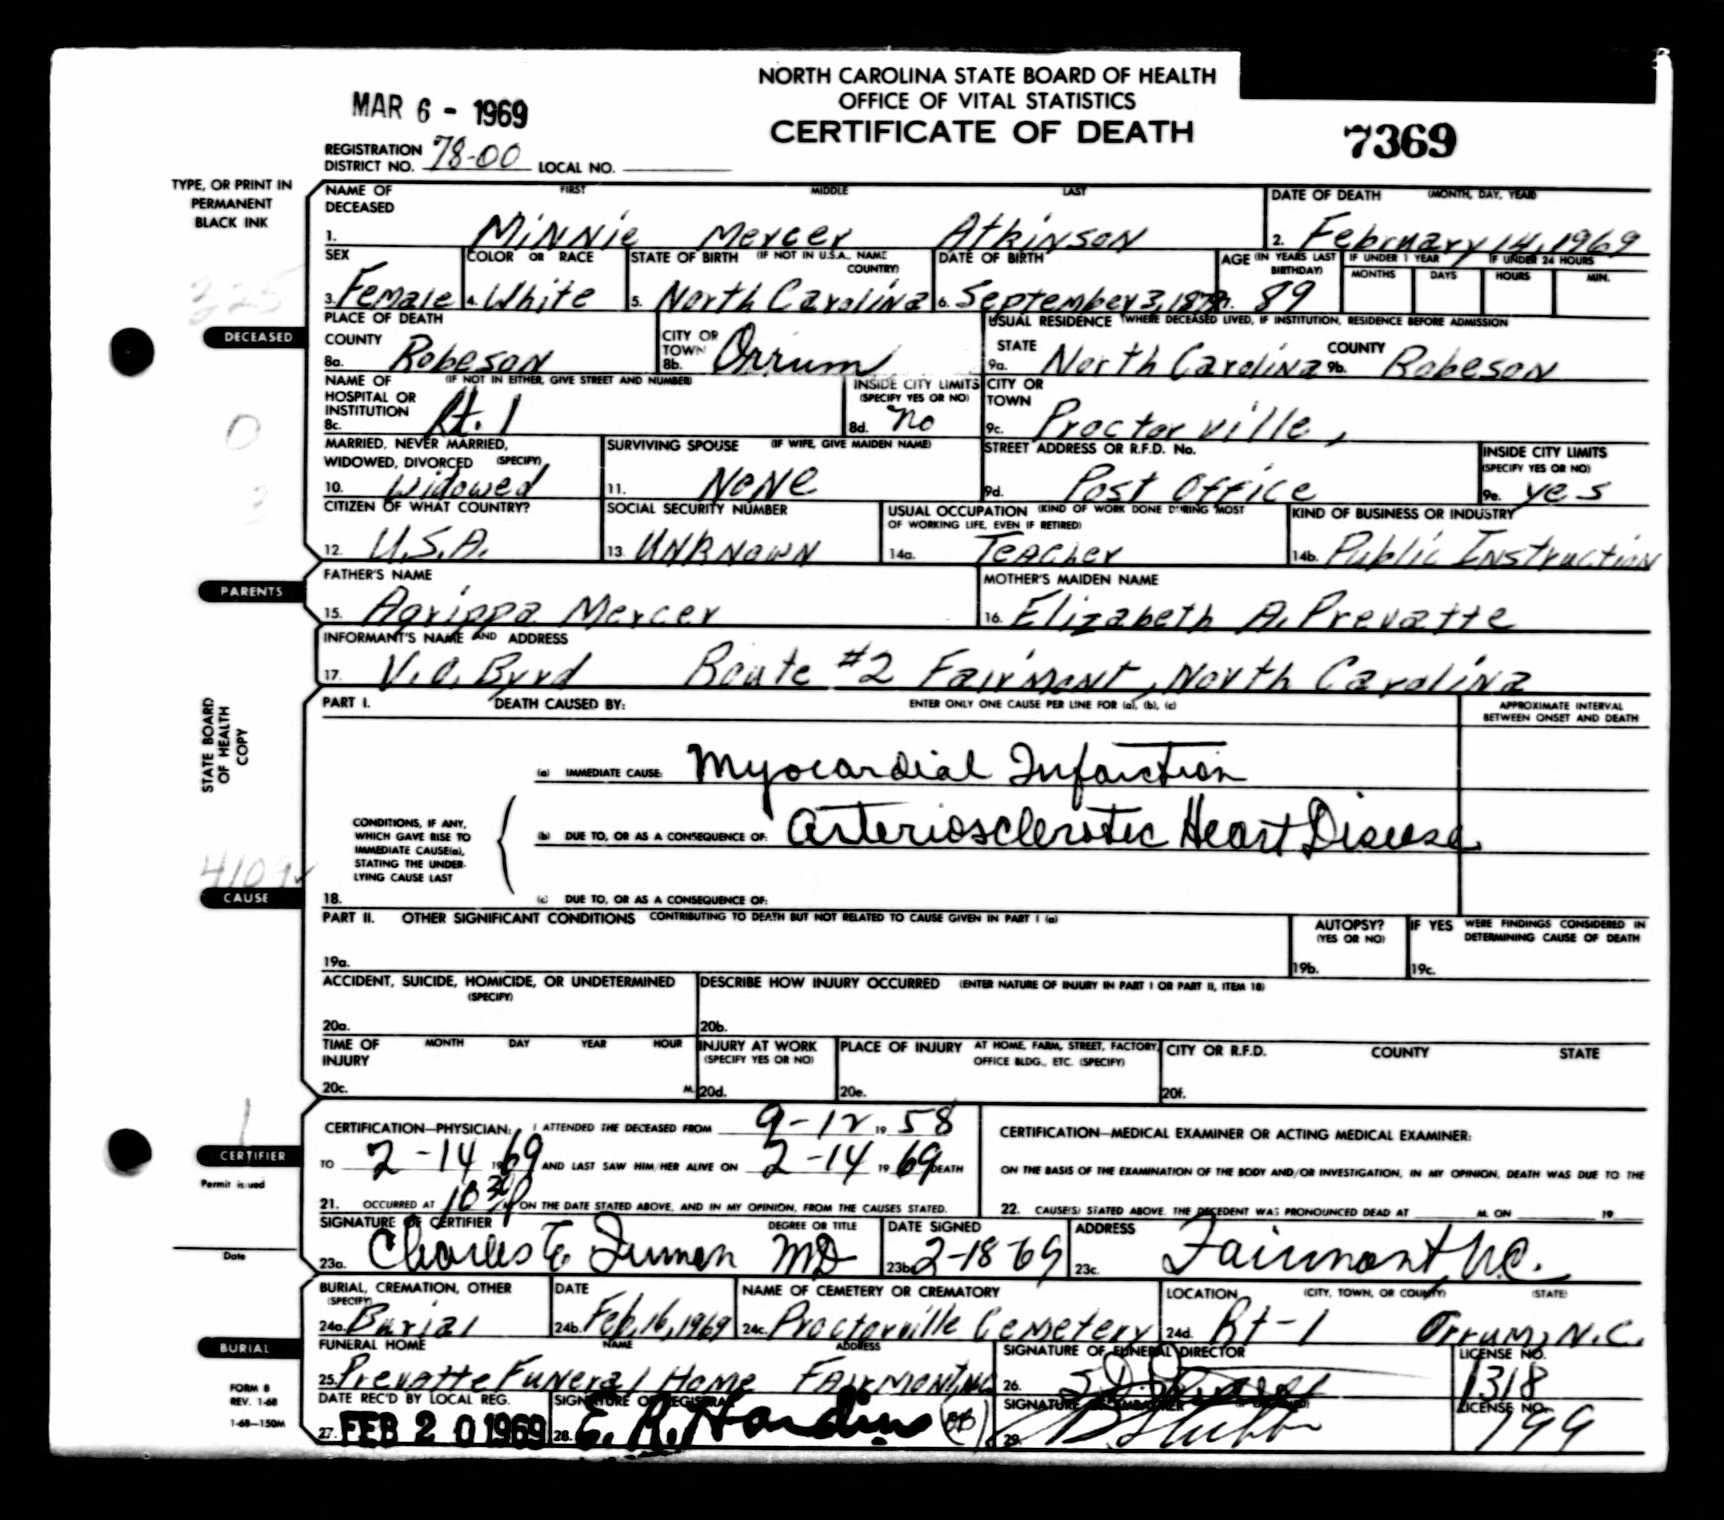 NORTH CAROLINA STATE BOARD OF HEALTH
OFFICE OF VITAL STATISTICS
CERTIFICATE OF DEATH
MAR 6 - 1969
7369
REGISTRATION DISTRICT NO. 78-00 LOCAL NO.
TYPE, OR PRINT IN
PERMANENT
BLACK INK
325
NAME OF DECEASED FIRST MIDDLE LAST
1. Minnie Mercer Atkinson
DATE OF DEATH (MONTH, DAY, YEAR)
2. February 14, 1969
SEX
3. Female
COLOR OR RACE
4. White
STATE OF BIRTH (IF NOT IN U.S.A., NAME COUNTRY)
5. North Carolina
DATE OF BIRTH
6. September 3, 1879
AGE (IN YEARS LAST BIRTHDAY)
89
IF UNDER 1 YEAR
MONTHS DAYS
IF UNDER 24 HOURS
HOURS MIN.
DECEASED
PLACE OF DEATH
COUNTY
8a. Robeson
CITY OR TOWN
8b. Orrum
USUAL RESIDENCE (WHERE DECEASED LIVED, IF INSTITUTION, RESIDENCE BEFORE ADMISSION
STATE
9a. North Carolina
COUNTY
9b. Robeson
NAME OF HOSPITAL OR INSTITUTION (IF NOT IN EITHER, GIVE STREET AND NUMBER)
8c. Rt. 1
INSIDE CITY LIMITS (SPECIFY YES OR NO)
8d. no
CITY OR TOWN
9c. Proctorville,
0
3
MARRIED, NEVER MARRIED, WIDOWED, DIVORCED (SPECIFY)
10. Widowed
SURVIVING SPOUSE (IF WIFE, GIVE MAIDEN NAME)
11. None
STREET ADDRESS OR R.F.D. No.
9d. Post Office
INSIDE CITY LIMITS (SPECIFY YES OR NO)
9e. yes
CITIZEN OF WHAT COUNTRY?
12. U.S.A.
SOCIAL SECURITY NUMBER
13. Unknown
USUAL OCCUPATION (KIND OF WORK DONE DURING MOST OF WORKING LIFE, EVEN IF RETIRED)
14a. Teacher
KIND OF BUSINESS OR INDUSTRY
14b. Public Instruction
PARENTS
FATHER'S NAME
15. Agrippa Mercer
MOTHER'S MAIDEN NAME
16. Elizabeth A. Prevatte
INFORMANT'S NAME AND ADDRESS
17. V.O. Byrd Route #2 Fairmont, North Carolina
STATE BOARD
OF HEALTH
COPY
PART I. DEATH CAUSED BY: ENTER ONLY ONE CAUSE PER LINE FOR (a), (b), (c)
APPROXIMATE INTERVAL BETWEEN ONSET AND DEATH
(a) IMMEDIATE CAUSE: Myocardial Infarction
CONDITIONS, IF ANY,
WHICH GAVE RISE TO
IMMEDIATE CAUSE(a),
STATING THE UNDER-
LYING CAUSE LAST
(b) DUE TO, OR AS A CONSEQUENCE OF: Arteriosclerotic Heart Disease
4109
CAUSE
18. (c) DUE TO, OR AS A CONSEQUENCE OF:
PART II. OTHER SIGNIFICANT CONDITIONS CONTRIBUTING TO DEATH BUT NOT RELATED TO CAUSE GIVEN IN PART I (a)
19a.
AUTOPSY? (YES OR NO)
19b.
IF YES WERE FINDINGS CONSIDERED IN DETERMINING CAUSE OF DEATH
19c.
ACCIDENT, SUICIDE, HOMICIDE, OR UNDETERMINED (SPECIFY)
20a.
DESCRIBE HOW INJURY OCCURRED (ENTER NATURE OF INJURY IN PART I OR PART II, ITEM 18)
20b.
TIME OF INJURY MONTH DAY YEAR HOUR
20c. M.
INJURY AT WORK (SPECIFY YES OR NO)
20d.
PLACE OF INJURY AT HOME, FARM, STREET, FACTORY, OFFICE BLDG., ETC. (SPECIFY)
20e.
CITY OR R.F.D. COUNTY STATE
20f.
1
CERTIFIER
Permit issued
Date
CERTIFICATION—PHYSICIAN: I ATTENDED THE DECEASED FROM 9-12 19 58
TO 2-14 19 69 AND LAST SAW HIM/HER ALIVE ON 2-14 19 69 DEATH
21. OCCURRED AT 10 30 P M ON THE DATE STATED ABOVE, AND IN MY OPINION, FROM THE CAUSES STATED.
CERTIFICATION—MEDICAL EXAMINER OR ACTING MEDICAL EXAMINER:
ON THE BASIS OF THE EXAMINATION OF THE BODY AND/OR INVESTIGATION, IN MY OPINION, DEATH WAS DUE TO THE
22. CAUSE(S) STATED ABOVE. THE DECEDENT WAS PRONOUNCED DEAD AT M. ON 19
SIGNATURE OF CERTIFIER DEGREE OR TITLE
23a. Charles E. Inman MD
DATE SIGNED
23b. 2-18-69
ADDRESS
23c. Fairmont, N.C.
BURIAL
BURIAL, CREMATION, OTHER (SPECIFY)
24a. Burial
DATE
24b. Feb. 16, 1969
NAME OF CEMETERY OR CREMATORY
24c. Proctorville Cemetery
LOCATION (CITY, TOWN, OR COUNTY) (STATE)
24d. Rt-1 Orrum, N.C.
FUNERAL HOME NAME ADDRESS
25. Prevatte Funeral Home Fairmont, NC
SIGNATURE OF FUNERAL DIRECTOR
26.
LICENSE NO.
1318
FORM 8
REV. 1-68
1-68—150M
DATE REC'D BY LOCAL REG.
27. FEB 20 1969
SIGNATURE OF REGISTRAR
28. E. R. Hardin
SIGNATURE OF EMBALMER
29.
LICENSE NO.
799